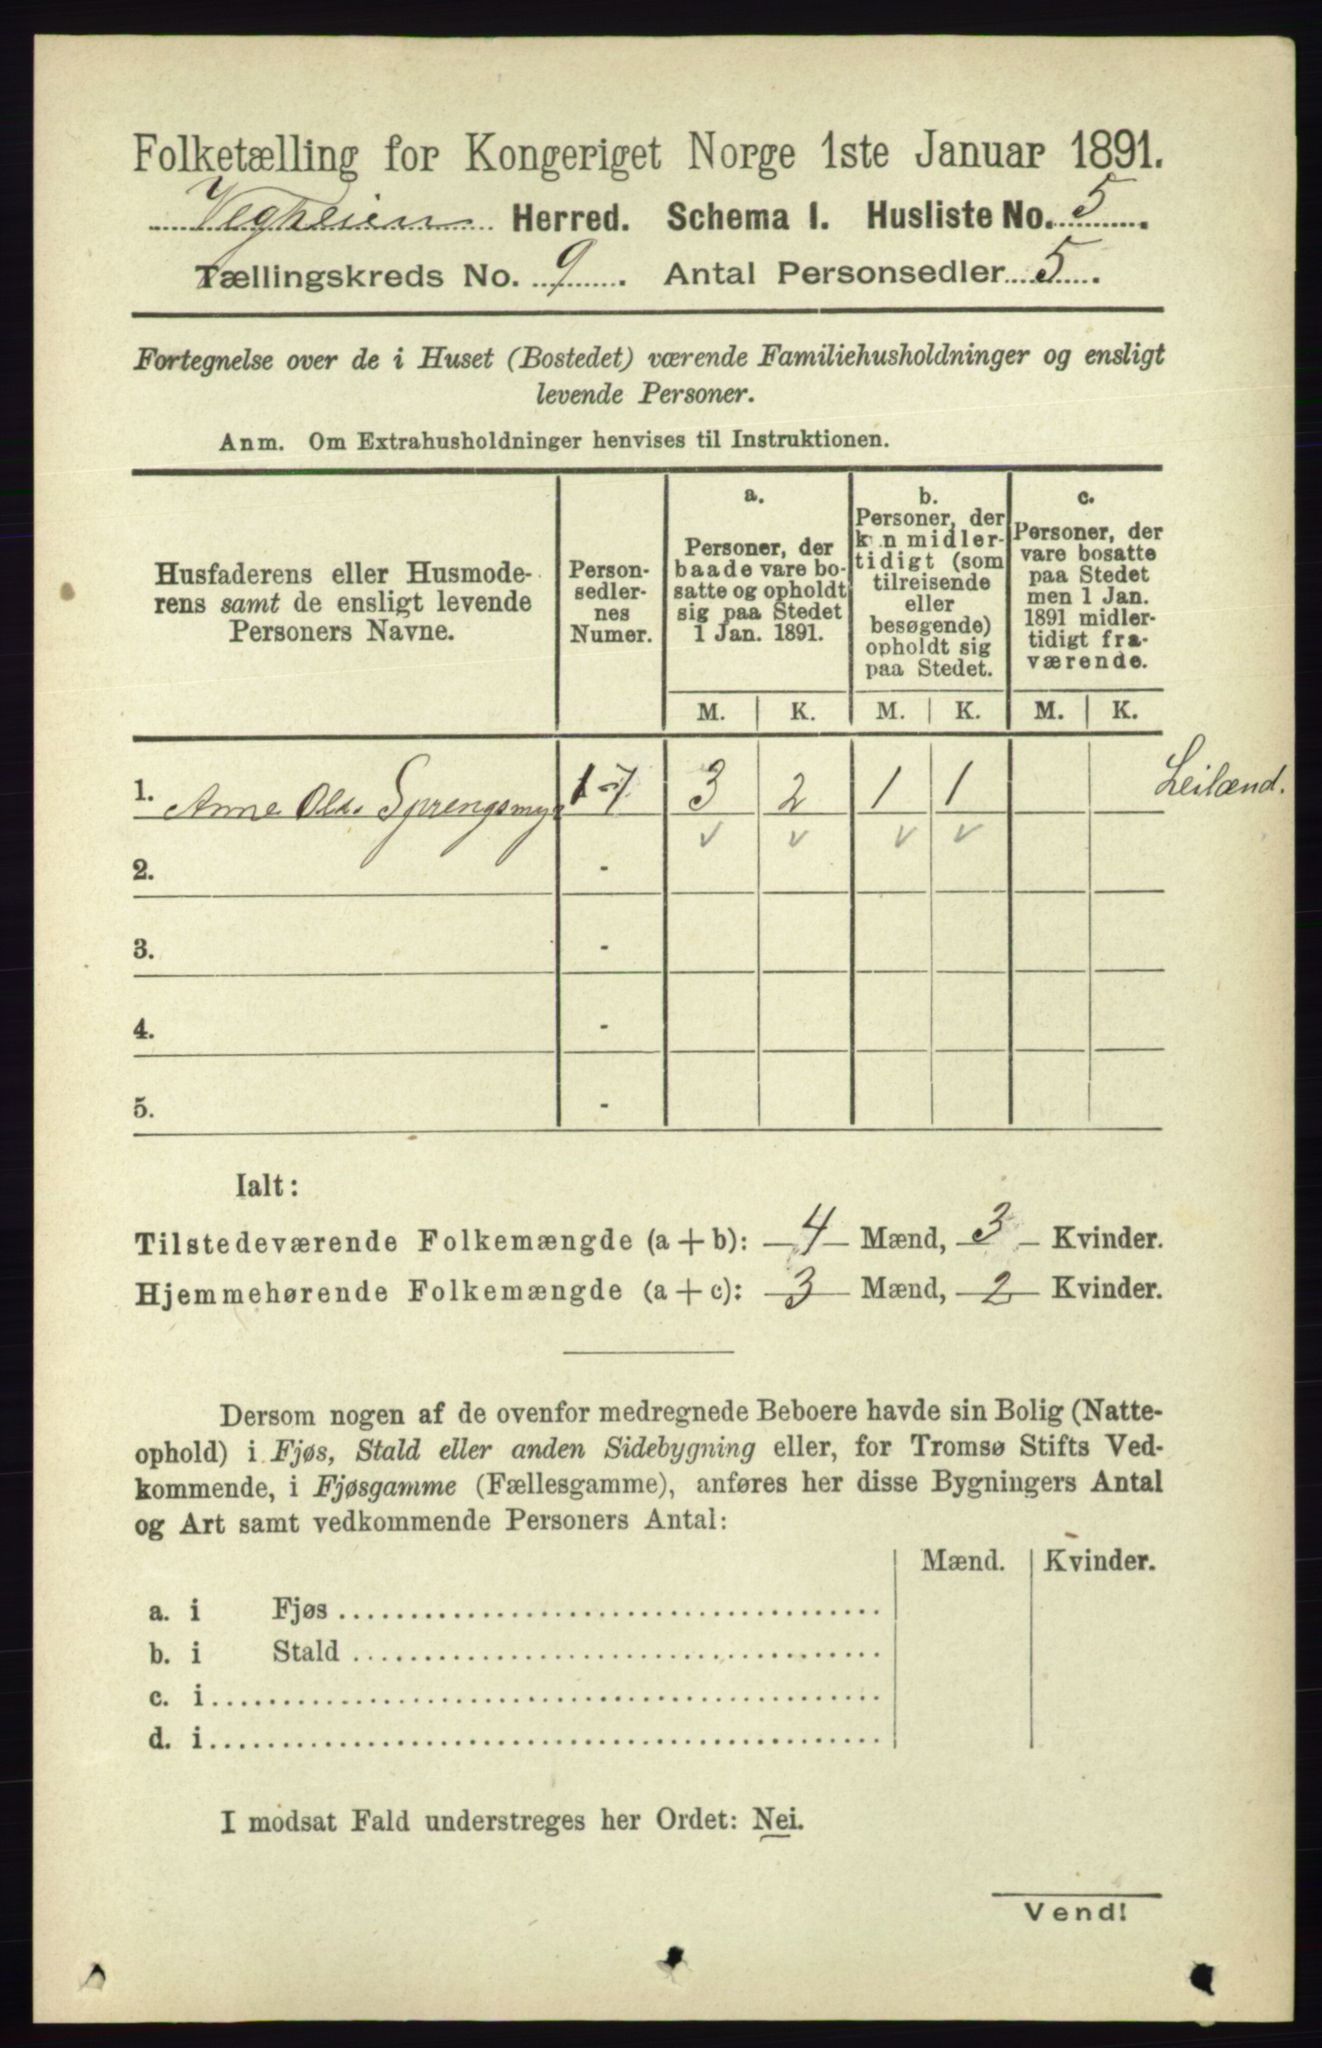 Folketælling for Kongeriget Norge 1ste Januar 1891.
Vegheien Herred. Schema I. Husliste No. 5.
Tællingskreds No. 9. Antal Personsedler 5.
Fortegnelse over de i Huset (Bostedet) værende Familiehusholdninger og ensligt
levende Personer.
Anm. Om Extrahusholdninger henvises til Instruktionen.
Husfaderens eller Husmode-
rens samt de ensligt levende
Personers Navne.
Person-
sedler-
nes
Numer.
a.
Personer, der
baade vare bo-
satte og opholdt
sig paa Stedet
1 Jan. 1891.
b.
Personer, der
kun midler-
tidigt (som
tilreisende
eller
besøgende)
opholdt sig
paa Stedet.
c.
Personer, der
vare bosatte
paa Stedet
men 1 Jan.
1891 midler-
tidigt fra-
værende.
M. K. M. K. M. K.
1. Anne Olsd. Sprengsmyr 1-7 3 2 1 1 Leilænd.
2. -
3. -
4. -
5. -
Ialt:
Tilstedeværende Folkemængde (a + b): 4 Mænd, 3 Kvinder.
Hjemmehørende Folkemængde (a + c): 3 Mænd, 2 Kvinder.
Dersom nogen af de ovenfor medregnede Beboere havde sin Bolig (Natte-
ophold) i Fjøs, Stald eller anden Sidebygning eller, for Tromsø Stifts Ved-
kommende, i Fjøsgamme (Fællesgamme), anføres her disse Bygningers Antal
og Art samt vedkommende Personers Antal:
Mænd. Kvinder.
a. i Fjøs
b. i Stald
c. i
d. i
I modsat Fald understreges her Ordet: Nei.
Vend!